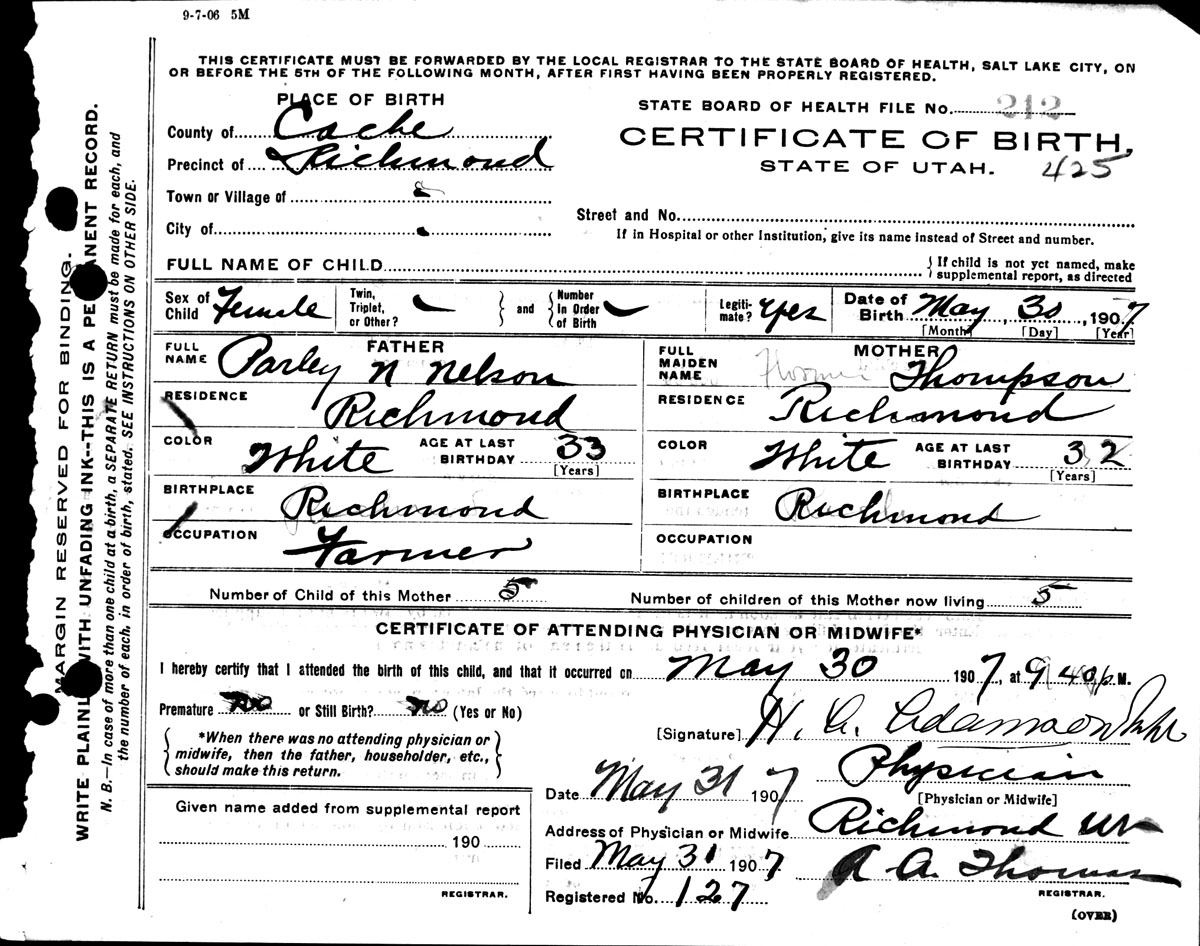 9-7-06 5M
THIS CERTIFICATE MUST BE FORWARDED BY THE LOCAL REGISTRAR TO THE STATE BOARD OF HEALTH, SALT LAKE CITY, ON
OR BEFORE THE 5TH OF THE FOLLOWING MONTH, AFTER FIRST HAVING BEEN PROPERLY REGISTERED.
PLACE OF BIRTH
County of Cache
Precinct of Richmond
Town or Village of
City of
STATE BOARD OF HEALTH FILE No. 212
CERTIFICATE OF BIRTH,
STATE OF UTAH. 425
Street and No.
If in Hospital or other Institution, give its name instead of Street and number.
FULL NAME OF CHILD
{ If child is not yet named, make
supplemental report, as directed
Sex of Child Female
Twin, Triplet, or Other? } and { Number In Order of Birth
Legitimate? Yes
Date of Birth May, 30, 1907
[Month] [Day] [Year]
FATHER
FULL NAME Parley N Nelson
RESIDENCE Richmond
COLOR White AGE AT LAST BIRTHDAY 33
[Years]
BIRTHPLACE Richmond
OCCUPATION Farmer
MOTHER
FULL MAIDEN NAME Thompson
RESIDENCE Richmond
COLOR White AGE AT LAST BIRTHDAY 32
[Years]
BIRTHPLACE Richmond
OCCUPATION
Number of Child of this Mother 5 Number of children of this Mother now living 5
CERTIFICATE OF ATTENDING PHYSICIAN OR MIDWIFE*
I hereby certify that I attended the birth of this child, and that it occurred on May 30 1907, at 9 40 p. M.
Premature no or Still Birth? no (Yes or No)
{ *When there was no attending physician or
midwife, then the father, householder, etc.,
should make this return. }
[Signature] H. C. Adamson
Physician
[Physician or Midwife]
Date May 31 1907
Address of Physician or Midwife Richmond
Filed May 31 1907 A. A. Thomas
Registered No. 127 REGISTRAR.
(OVER)
Given name added from supplemental report
190
REGISTRAR.
MARGIN RESERVED FOR BINDING.
WRITE PLAINLY WITH UNFADING INK--THIS IS A PE ANENT RECORD.
N. B.—In case of more than one child at a birth, a SEPARATE RETURN must be made for each, and
the number of each, in order of birth, stated. SEE INSTRUCTIONS ON OTHER SIDE.